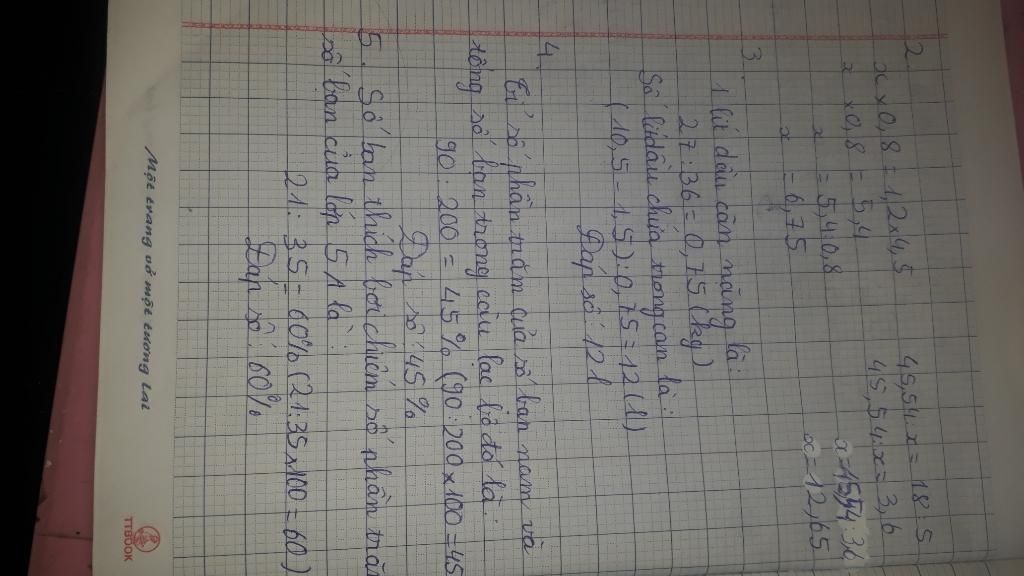 2
x × 0,8 = 1,2 × 4,5
x × 0,8 = 5,4
x = 5,4 0,8
x = 6,75
45,54 : x = 18 : 5
45,54 : x = 3,6
x = 45,54 : 3,6
x = 12,65
3.
1 lít dầu cân nặng là:
27 : 36 = 0,75 (kg)
Số lít dầu chứa trong can là:
(10,5 - 1,5) : 0,75 = 12 (l)
Đáp số: 12 l
4.
Tỉ số phần trăm của số bạn nam và
tổng số bạn trong câu lạc bộ đó là:
90 : 200 = 45% (90 : 200 × 100 = 45
Đáp số: 45%
5. Số bạn thích bơi chiếm số phần trăm
số bạn của lớp 5A là:
21 : 35 = 60% (21 : 35 × 100 = 60)
Đáp số: 60%
Một trang vở một tương lai
TTBOOK